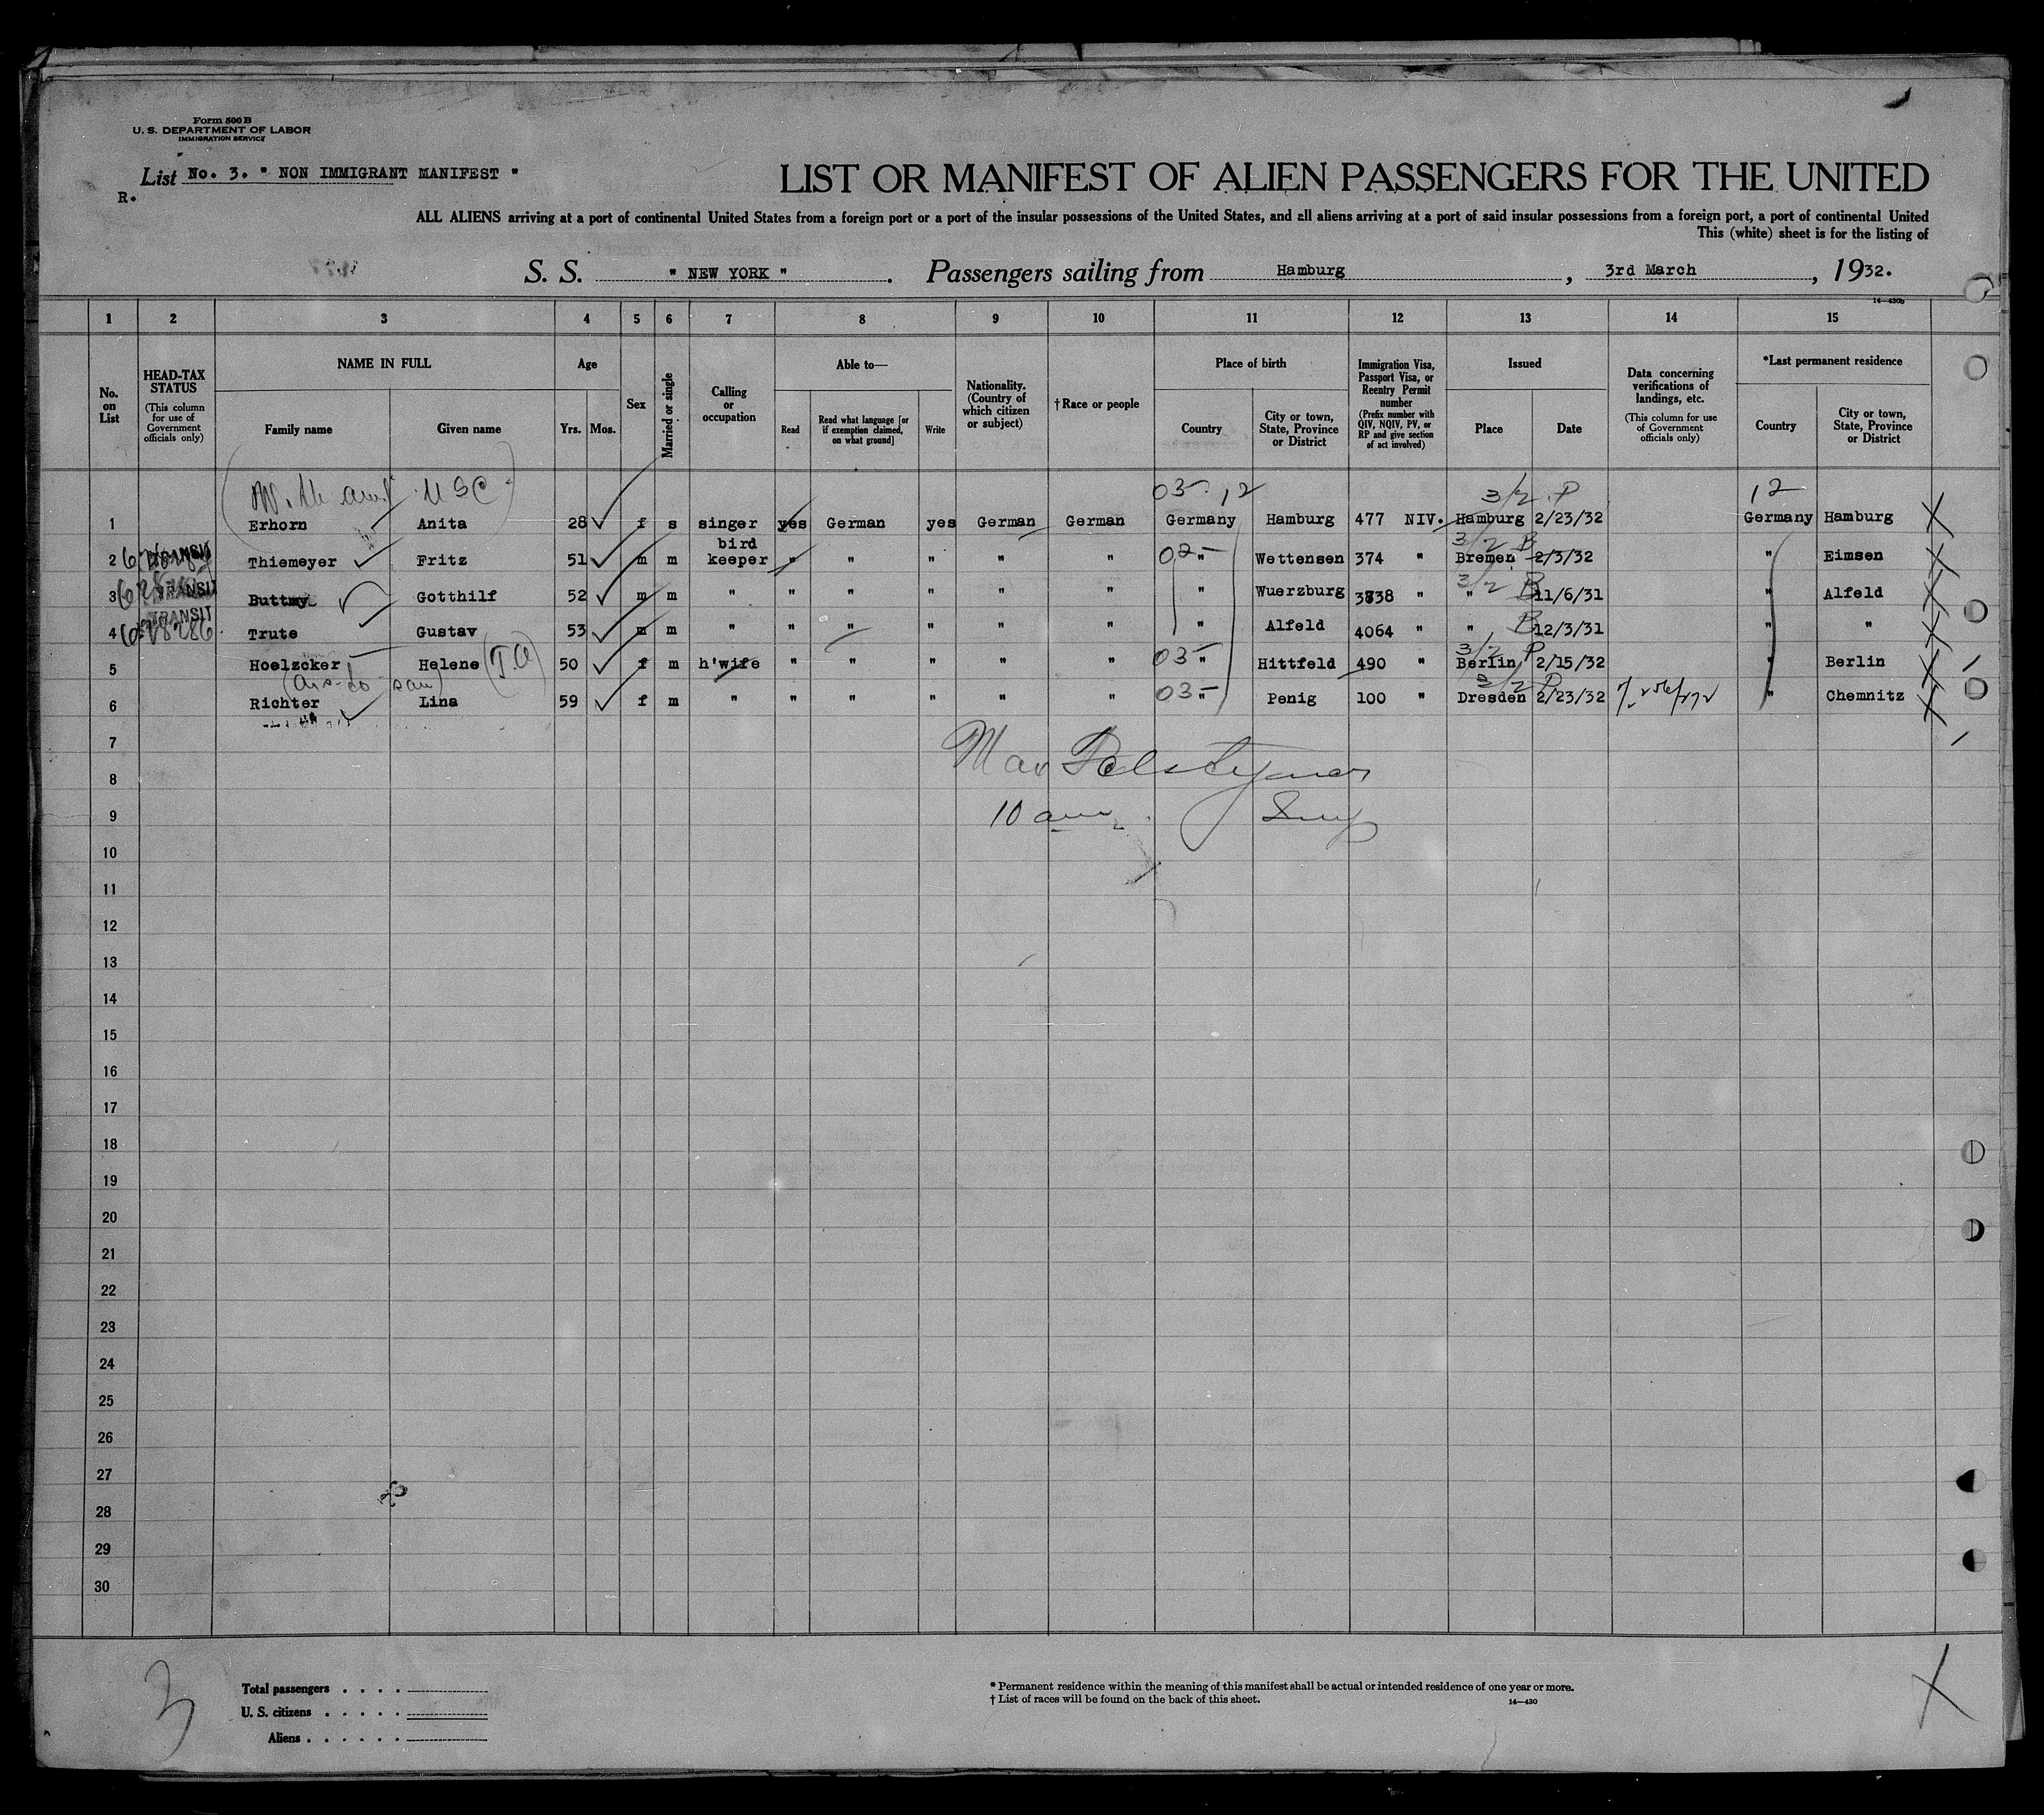 Form 500 B
U. S. DEPARTMENT OF LABOR
IMMIGRATION SERVICE
List No. 3. " NON IMMIGRANT MANIFEST "
R.
LIST OR MANIFEST OF ALIEN PASSENGERS FOR THE UNITED
ALL ALIENS arriving at a port of continental United States from a foreign port or a port of the insular possessions of the United States, and all aliens arriving at a port of said insular possessions from a foreign port, a port of continental United
This (white) sheet is for the listing of
S. S. " NEW YORK ". Passengers sailing from Hamburg, 3rd March, 1932.
14—430b
1 2 3 4 5 6 7 8 9 10 11 12 13 14 15
No. on List
HEAD-TAX STATUS (This column for use of Government officials only)
NAME IN FULL
Family name Given name
Age
Yrs. Mos.
Sex
Married or single
Calling or occupation
Able to—
Read Read what language [or if exemption claimed, on what ground] Write
Nationality. (Country of which citizen or subject)
†Race or people
Place of birth
Country City or town, State, Province or District
Immigration Visa, Passport Visa, or Reentry Permit number (Prefix number with QIV, NQIV, PV, or RP and give section of act involved)
Issued
Place Date
Data concerning verifications of landings, etc. (This column for use of Government officials only)
*Last permanent residence
Country City or town, State, Province or District
USC 03 12 3/2 P 12
1 Erhorn Anita 28 f s singer yes German yes German German Germany Hamburg 477 NIV. Hamburg 2/23/32 Germany Hamburg
3/2 B
2 TRANSIT Thiemeyer Fritz 51 m m bird keeper " " " " " 02 " Wettensen 374 " Bremen 2/3/32 " Eimsen
3/2 B
3 TRANSIT Buttmy Gotthilf 52 m m " " " " " " " Wuerzburg 3838 " " 11/6/31 " Alfeld
B
4 TRANSIT 628286 Trute Gustav 53 m m " " " " " " " Alfeld 4064 " " 12/3/31 " "
3/2 P
5 Hoelzcker Helene 50 f m h'wife " " " " " 03 " Hittfeld 490 " Berlin 2/15/32 " Berlin
3/2 P
6 Richter Lina 59 f m " " " " " " 03 " Penig 100 " Dresden 2/23/32 " Chemnitz
7
8
10 am
9
10
11
12
13
14
15
16
17
18
19
20
21
22
23
24
25
26
27
28
29
30
3
Total passengers . . . .
U. S. citizens . . . . .
Aliens . . . . . .
* Permanent residence within the meaning of this manifest shall be actual or intended residence of one year or more.
† List of races will be found on the back of this sheet. 14—430
X